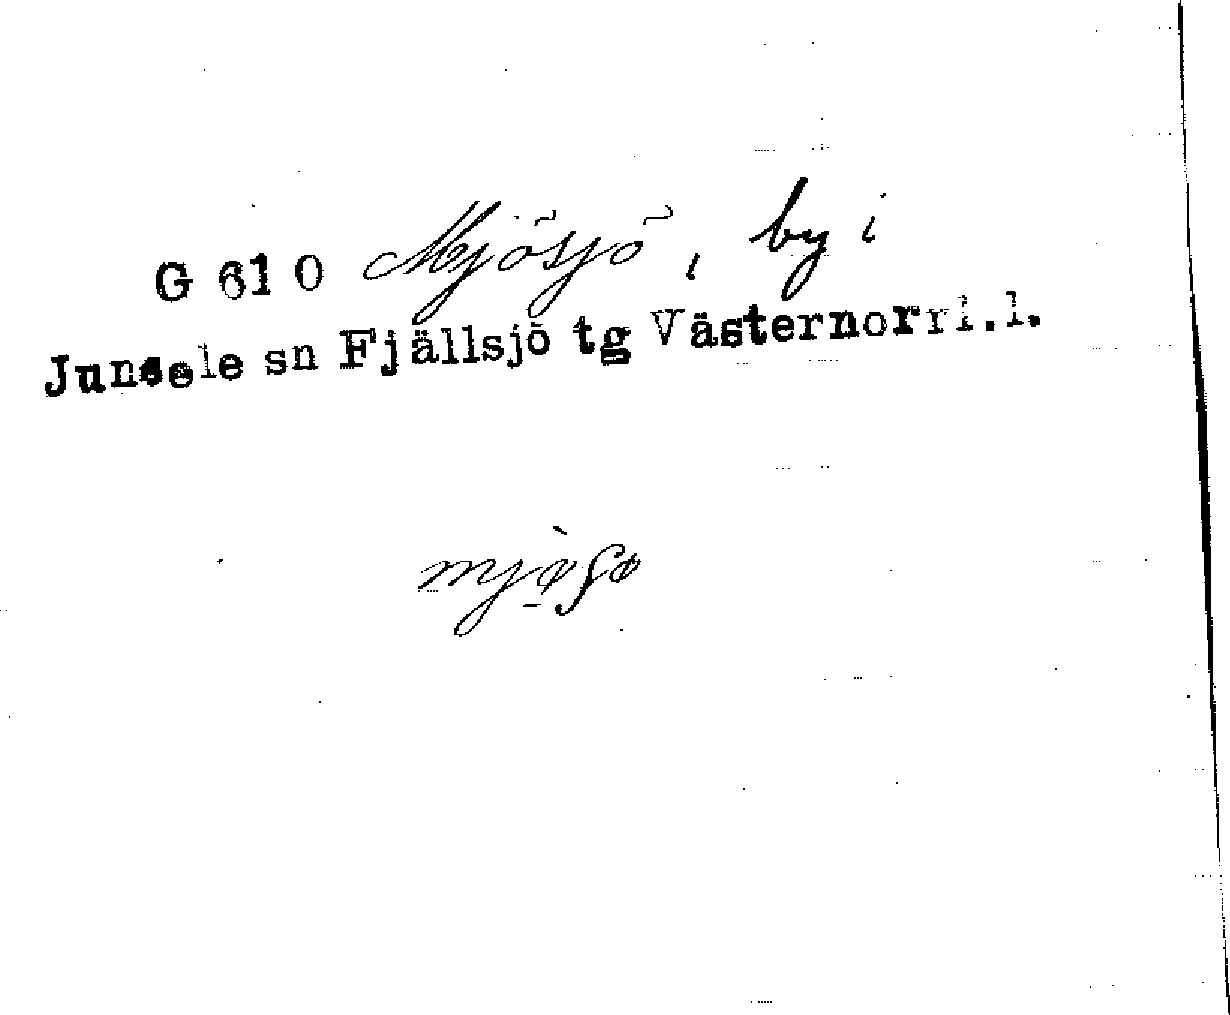 G 610 Mjösjö, by i
Junsele sn Fjällsjö tg Västernorrl.l.